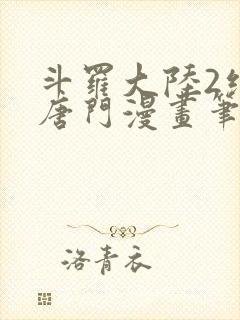 斗羅大陸2絕
唐門漫畫筆
洛青衣